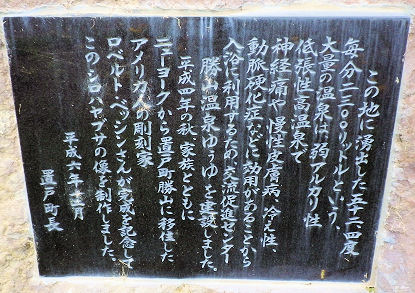 この地に湧出した五十六四度
毎分二三〇〇リットルという、
大量の温泉は、弱アルカリ性
低張性高温泉で
神経痛や慢性皮膚病、冷え性、
動脈硬化症などに効用があることから
入浴に利用するため、交流促進センター
勝山温泉ゆぅゆを建設しました。
平成四年の秋、家族とともに
ニューヨークから置戸町勝山に移住した
アメリカ人の彫刻家
ロベルト・ベッシンさんが完成を記念して
このシロハヤブサの像を制作しました。
平成八年十二月
置戸町長